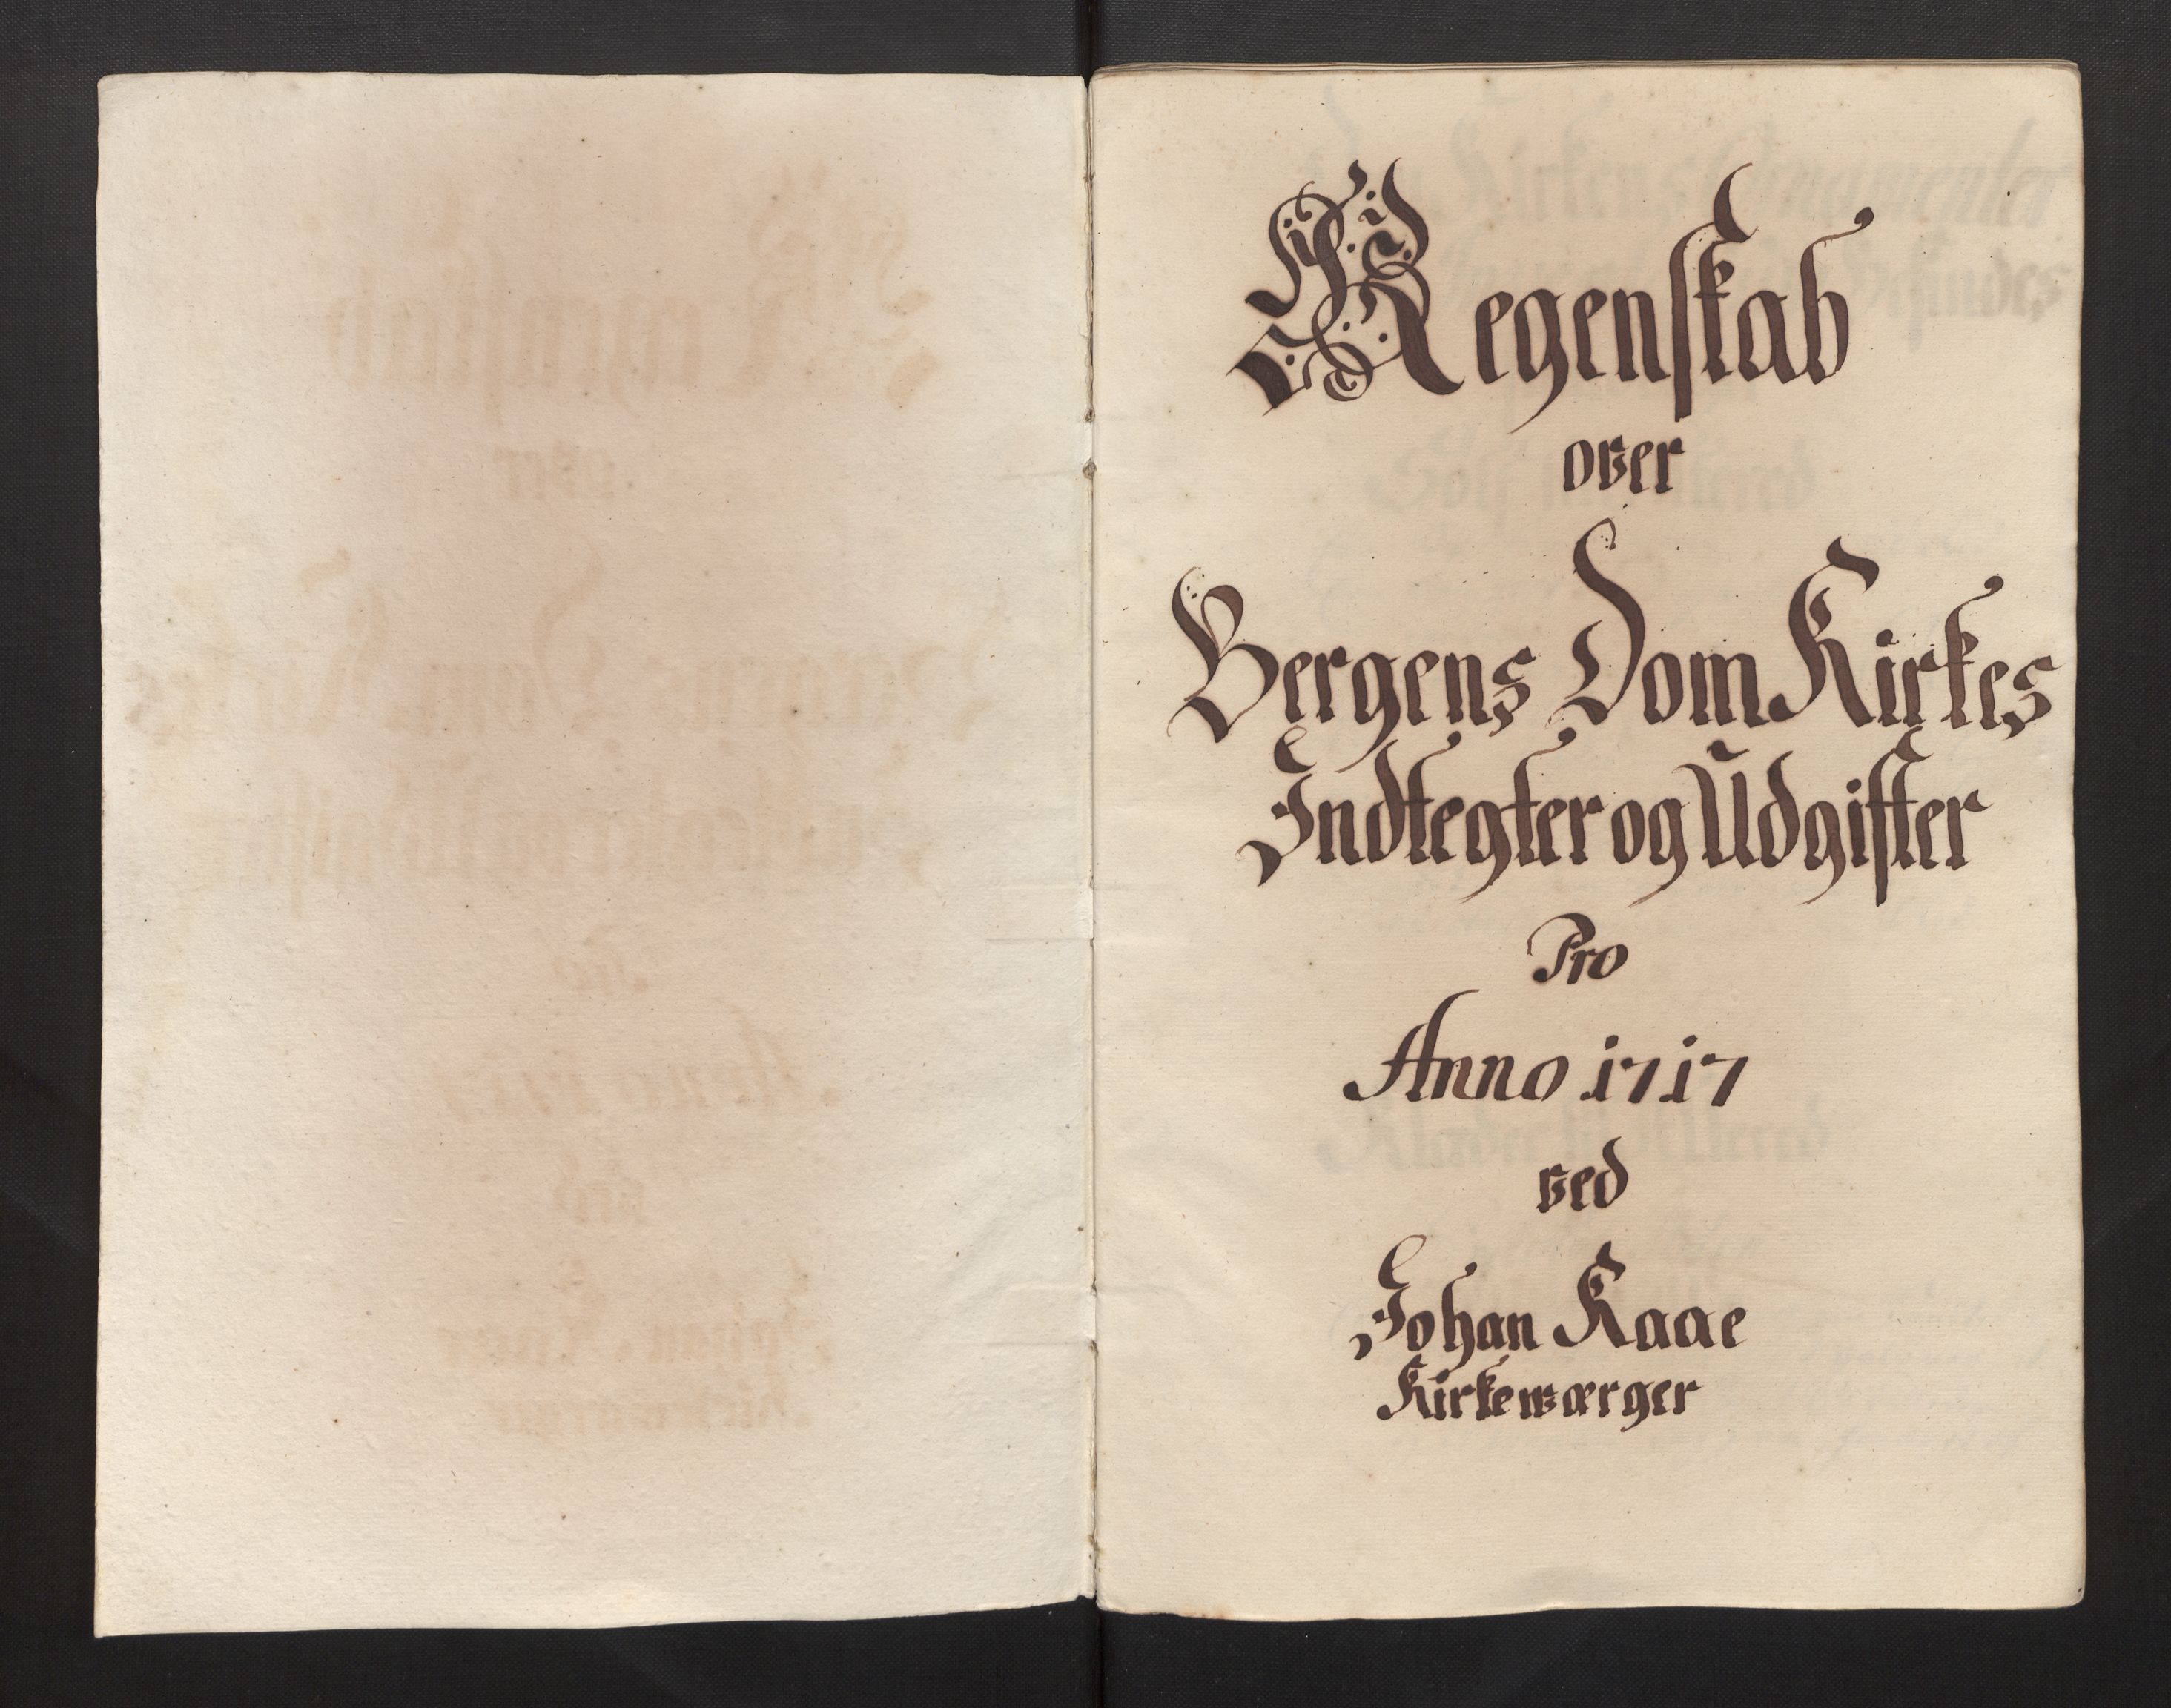 Regenskab
over
Bergens Dom Kirkes
Indtegter og Udgifter
Pro
Anno 1717
ved
Johan Kaae
Kirkewærger